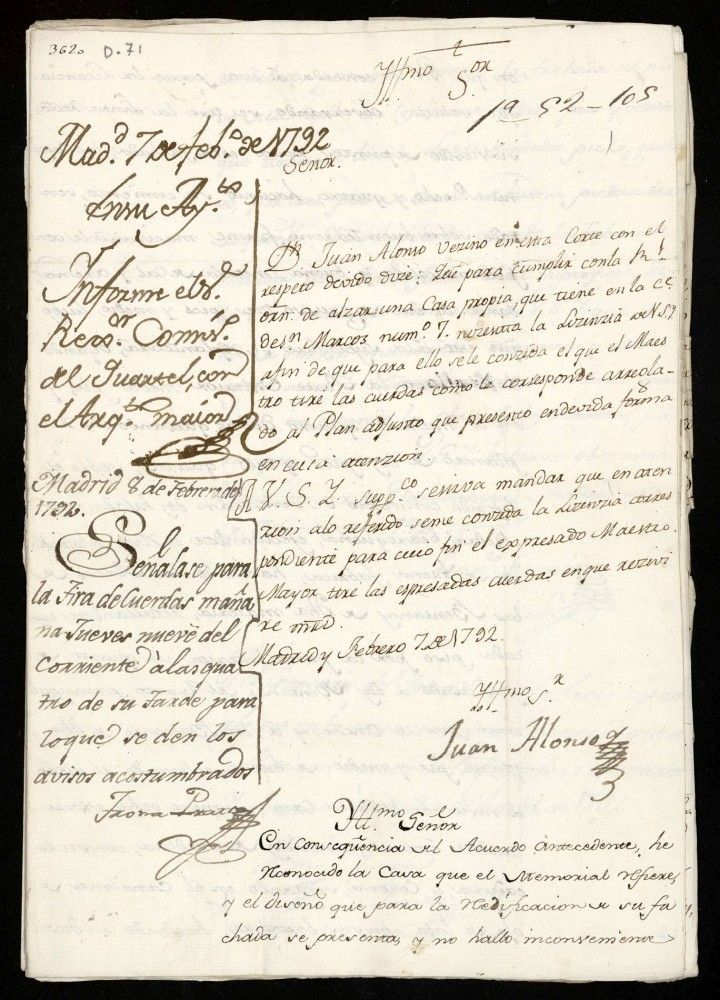 3620 D.71
Yllmo Sor
1ª 52-105
Madd. 7 de febº de 1792
Señor.
En su Ayto
Informe el Sr.
Rexor Comis.
del Quartel, con
el Arqto maior
Dn Juan Alonso Vezino en esta Corte con el
respeto devido dize: Que para cumplir con la Rl.
orn. de alzar una Casa propia, que tiene en la ce.
de Sn Marcos numº 7. nezesita la Lizenzia de V.S.Y.
afin de que para ello sele conzeda el que el Maes
tro tire las cuerdas como le corresponde arreola-
do al Plan adjunto que presento en devida forma
en cuia atenzion.
A V. S. Y. suppco se sirva mandar que en aten
zion alo referido seme conzeda la Lizenzia corres
pondiente para cuio fin el expresado Maestro
Mayor tire las espresadas cuerdas en que rezivi
re mrd.
Madrid y Febrero 7 de 1792.
Yllmo Sr
Juan Alonso
Madrid 8 de Febrero de
1792.
Señalase para
la Tira de Cuerdas maña
na Jueves nueve del
Corriente à las qua
tro de su tarde para
lo que se den los
avisos acostumbrados
Yllmo Señor
En conseqüencia del Acuerdo antecedente, he
reconocido la Casa que el Memorial refiere,
y el diseño que para la reedificacion de su fa
chada se presenta, y no hallo inconveniente